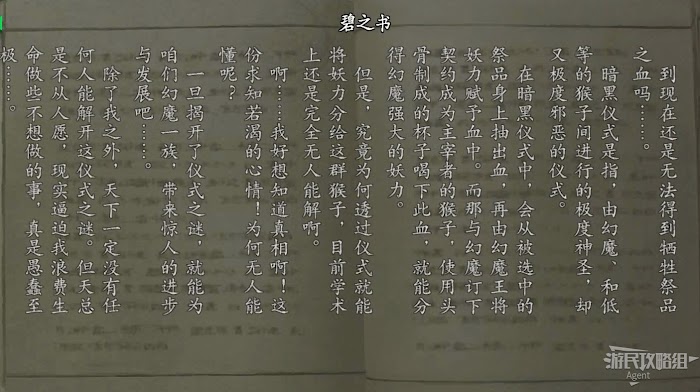 碧之书
到现在还是无法得到牺牲祭品
之血吗……。
暗黑仪式是指，由幻魔、和低
等的猴子间进行的极度神圣，却
又极度邪恶的仪式。
在暗黑仪式中，会从被选中的
祭品身上抽出血，再由幻魔王将
妖力赋予血中。而那与幻魔订下
契约成为主宰者的猴子，使用头
骨制成的杯子喝下此血，就能分
得幻魔强大的妖力。
但是，究竟为何透过仪式就能
将妖力分给这群猴子，目前学术
上还是完全无人能解啊。
啊……我好想知道真相啊！这
份求知若渴的心情！为何无人能
懂呢？
一旦揭开了仪式之谜，就能为
咱们幻魔一族，带来惊人的进步
与发展吧……。
除了我之外，天下一定没有任
何人能解开这仪式之谜。但天总
是不从人愿，现实逼迫我浪费生
命做些不想做的事，真是愚蠢至
极……。
游民攻略组
Agent